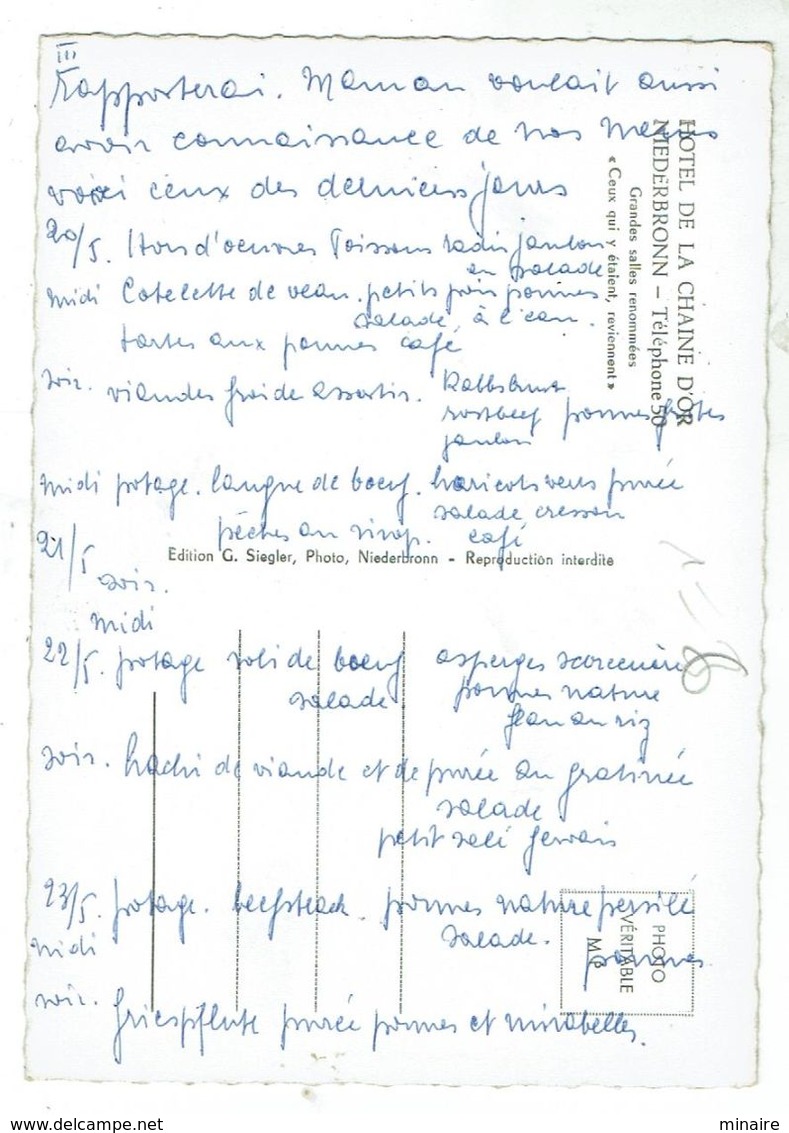 III
rapporterai. Maman voulait aussi
avoir connaissance de nos menus
voici ceux des derniers jours
20/5. Hors d'oeuvres Poissons radis jambon
en salade
midi Cotelette de veau. petits pois pommes
salade, à l'eau.
tartes aux pommes café
soir. viandes froide assortis. Kalbsbrust
rostbeef pommes frites
jambon
midi potage. langue de boeuf. haricots verts purée
salade cresson
pêches au sirop. café
21/5
soir.
midi
22/5. potage roti de boeuf asperges scorconère
salade pommes nature
flan au riz
soir. hachi de viande et de purée au gratinée
salade
petit salé Gervais
23/5. potage. beefsteack. pommes nature persillé
midi salade. pommes
soir. Griespflute purée pommes et mirabelles.
HOTEL DE LA CHAINE D'OR
NIEDERBRONN - Téléphone 50
Grandes salles renommées
« Ceux qui y étaient, reviennent »
Edition G. Siegler, Photo, Niederbronn - Reproduction interdite
PHOTO
VÉRITABLE
delcampe.net
minaire